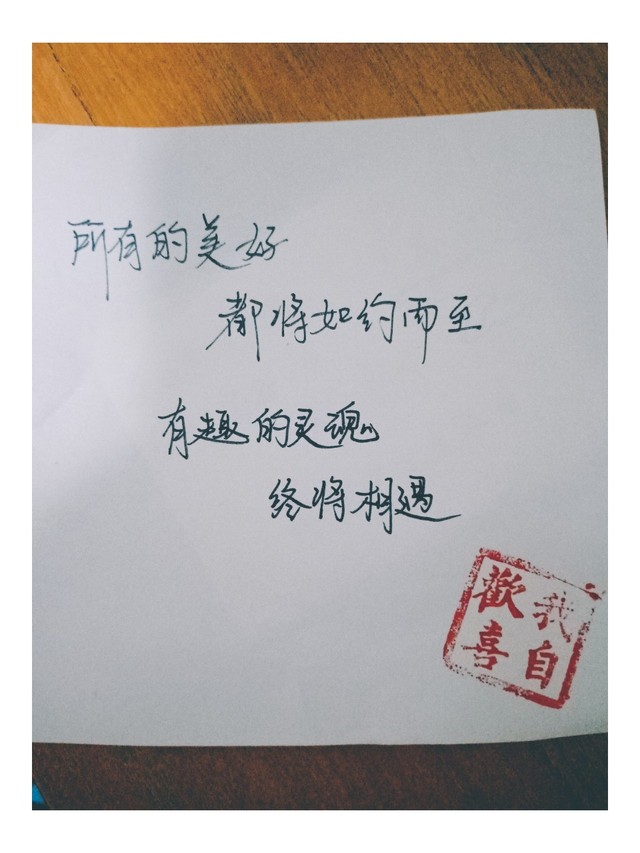 所有的美好
都将如约而至
有趣的灵魂
终将相遇
我自
歡喜